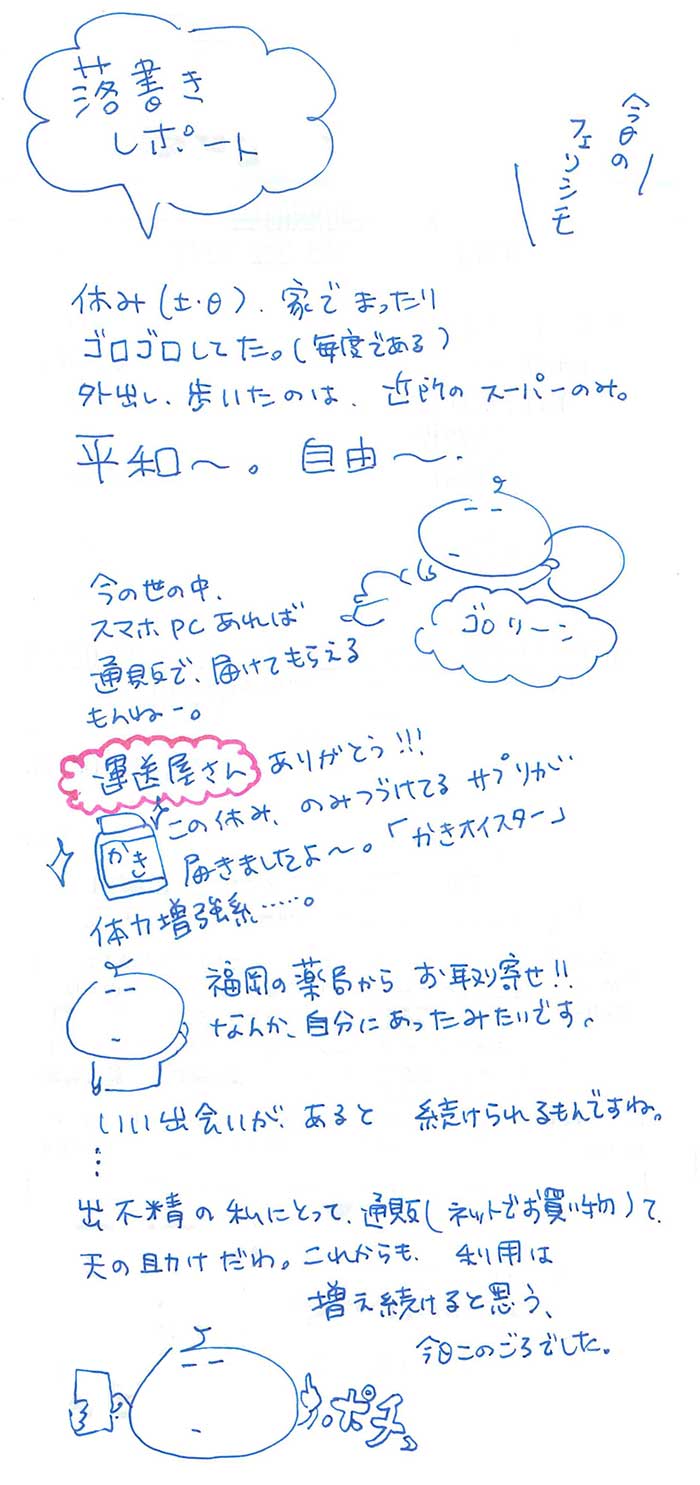 落書き
レポート
今日の
フェリシモ
休み(土・日)、家でまったり
ゴロゴロしてた。(毎度である)
外出し、歩いたのは、近所のスーパーのみ。
平和〜。自由〜。
ゴロリーン
今の世の中、
スマホPCあれば
通販で、届けてもらえる
もんねー。
運送屋さん ありがとう!!!
この休み、のみつづけてるサプリが
届きましたよ〜。「かきオイスター」
かき
体力増強系……。
福岡の薬局からお取り寄せ!!
なんか、自分にあったみたいです。
いい出会いが、あると 続けられるもんですね。
⋮
出不精の私にとって、通販(ネットでお買い物)て、
天の助けだわ。これからも、利用は
増え続けると思う、
今日このごろでした。
ポチッ